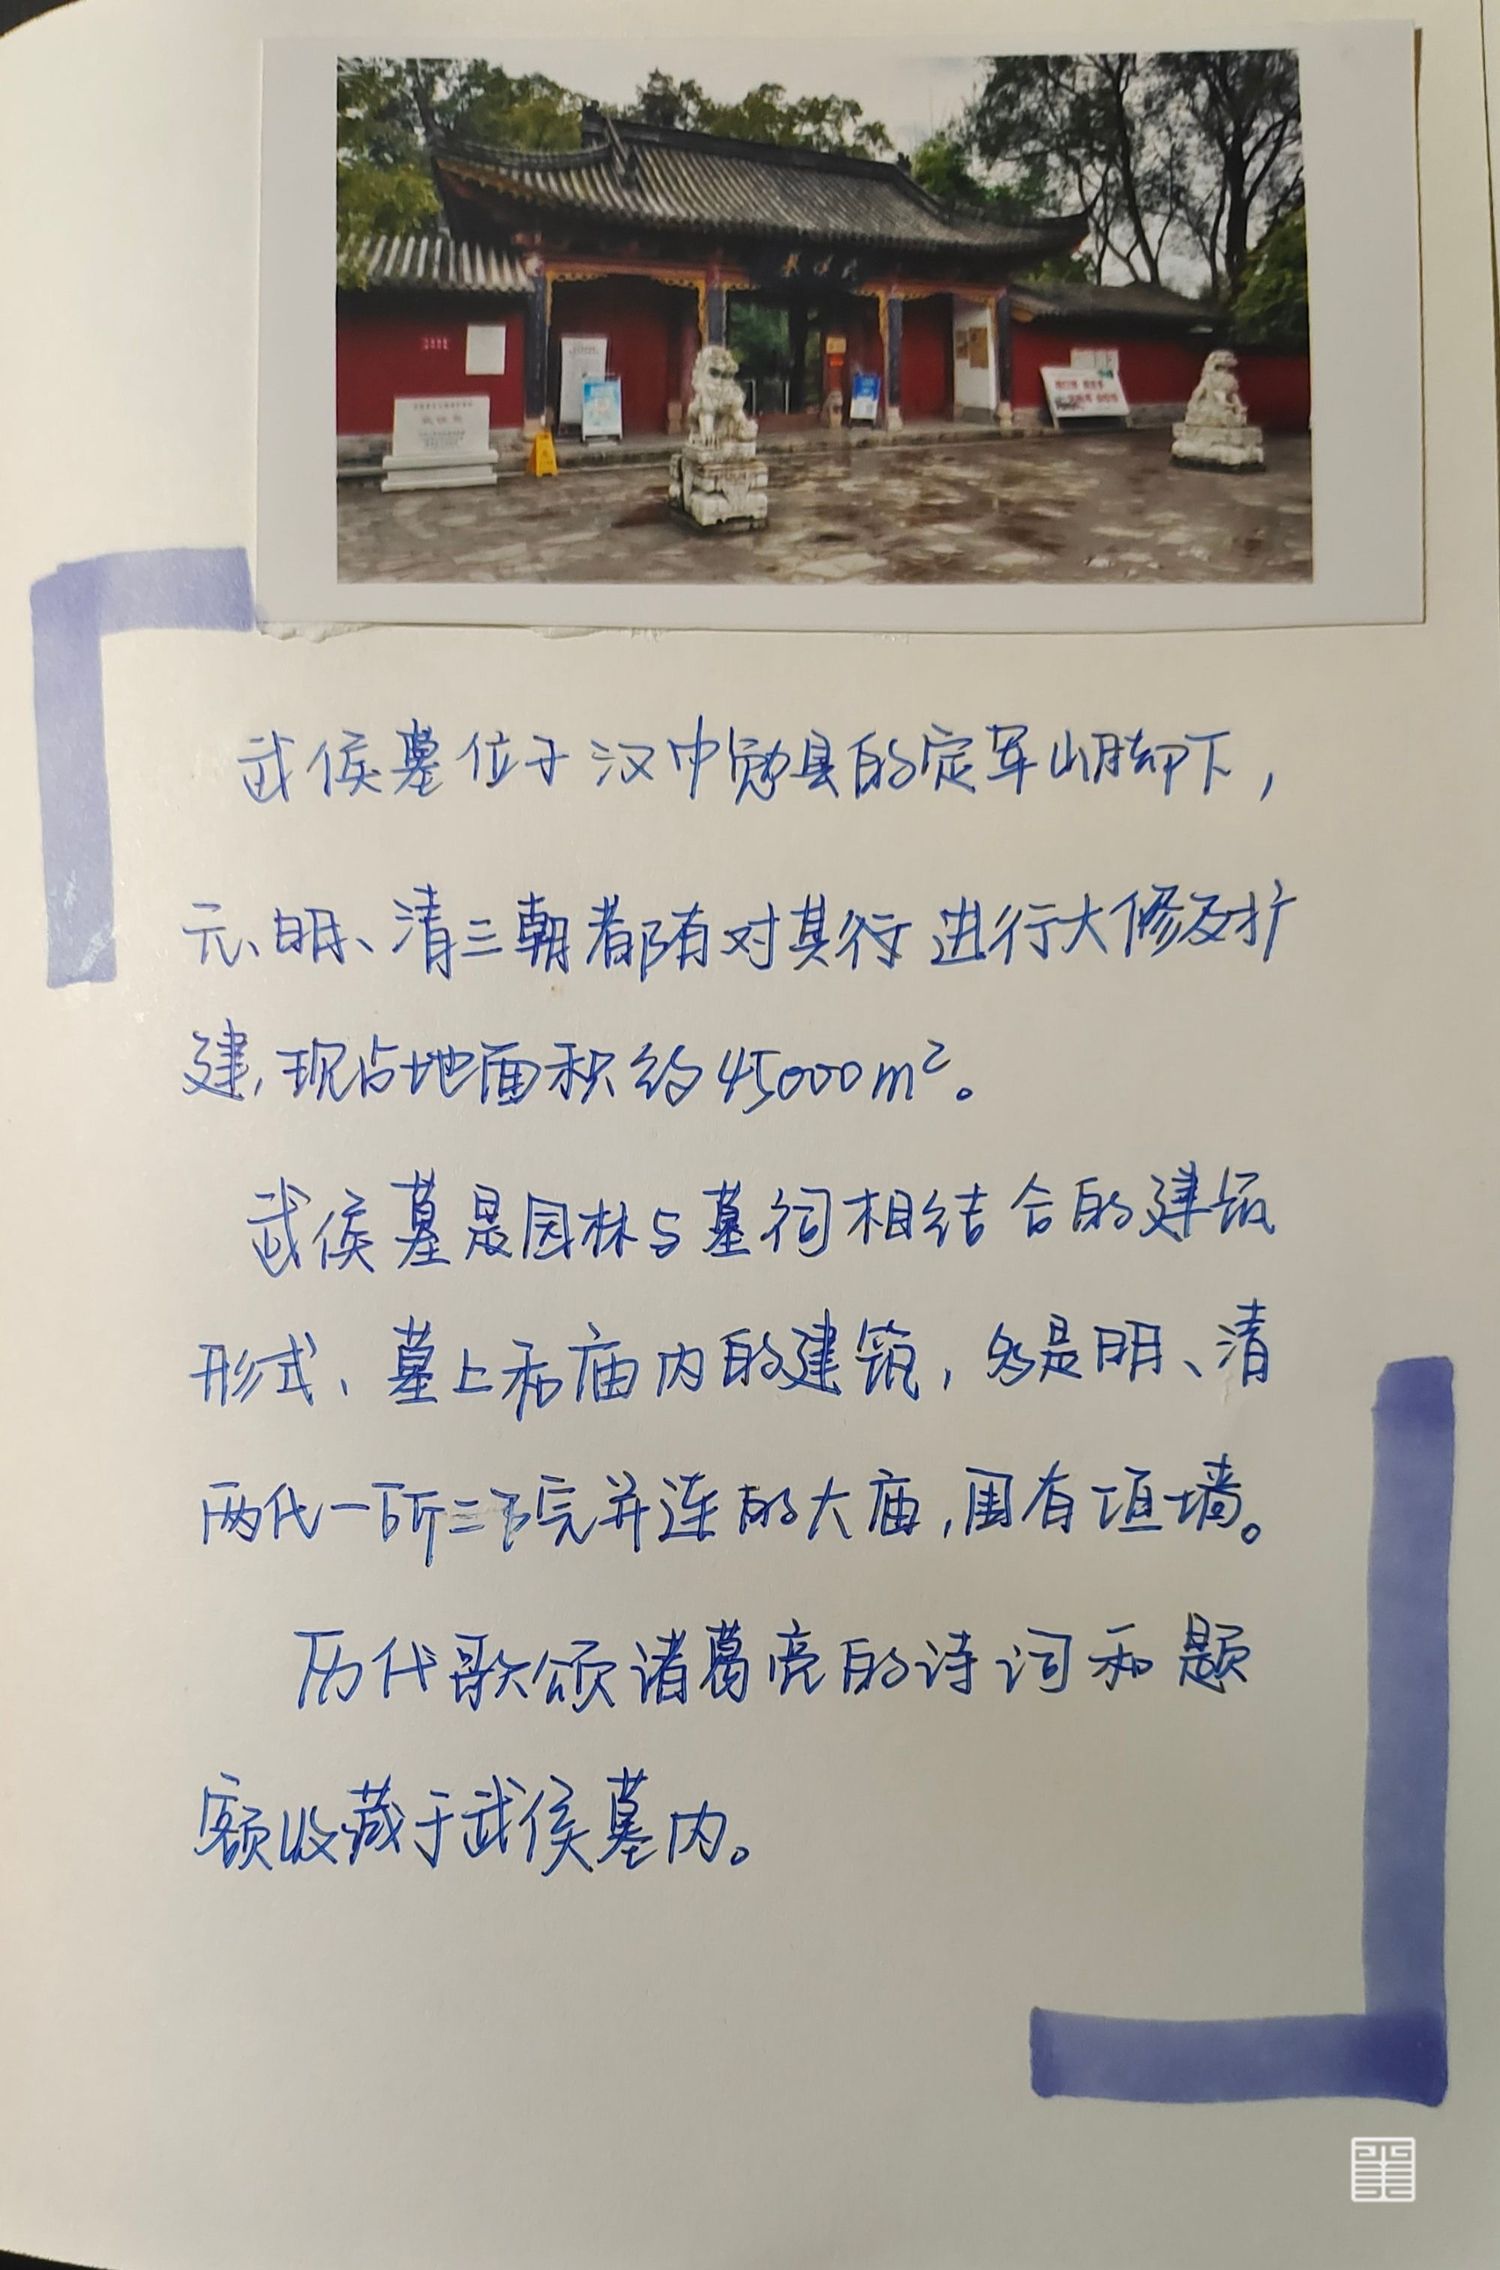 武侯墓位于汉中勉县的定军山脚下，
元、明、清三朝都有对其行进行大修及扩
建，现占地面积约45000m²。
武侯墓是园林与墓祠相结合的建筑
形式、墓上和庙内的建筑，多是明、清
两代一所三院并连的大庙，围有垣墙。
历代歌颂诸葛亮的诗词和题
额收藏于武侯墓内。